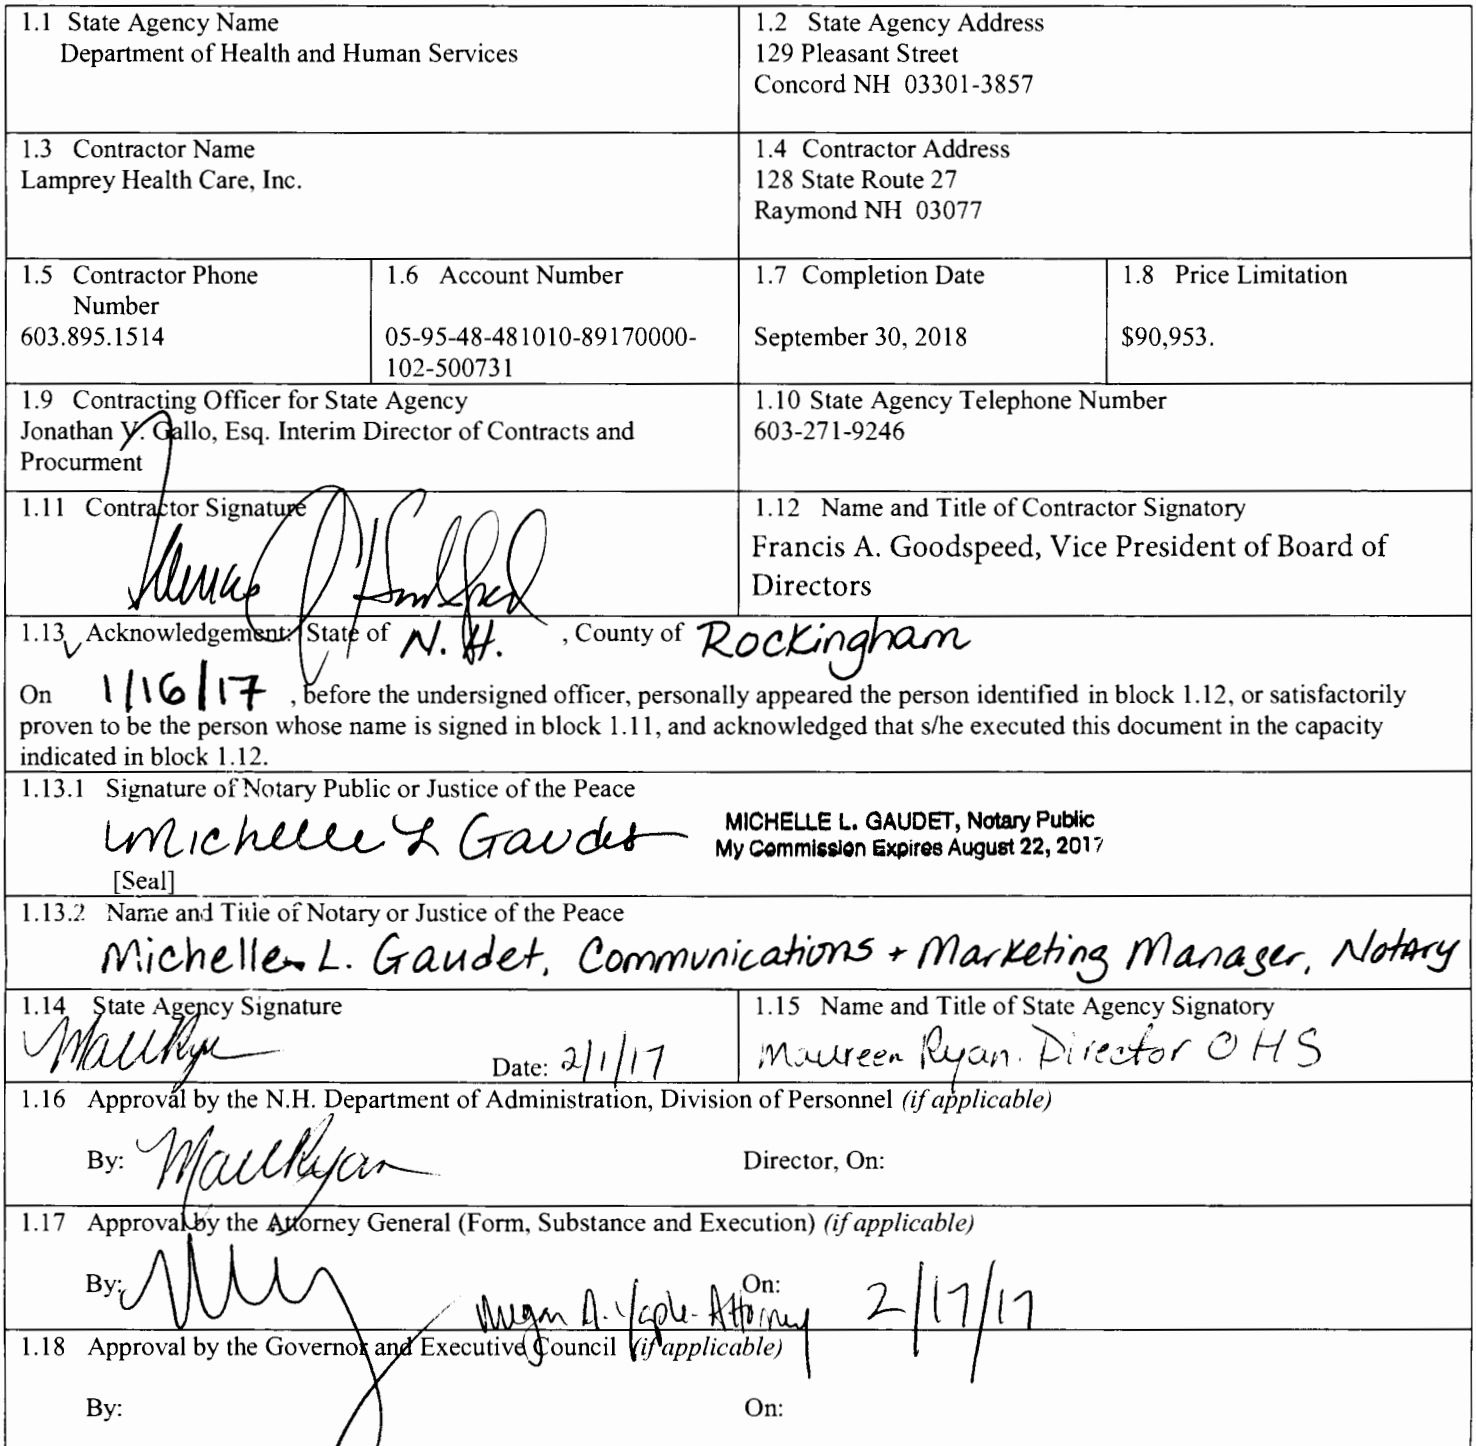 1.1 State Agency Name
Department of Health and Human Services
1.2 State Agency Address
129 Pleasant Street
Concord NH 03301-3857
1.3 Contractor Name
Lamprey Health Care, Inc.
1.4 Contractor Address
128 State Route 27
Raymond NH 03077
1.5 Contractor Phone
Number
603.895.1514
1.6 Account Number
05-95-48-481010-89170000-
102-500731
1.7 Completion Date
September 30, 2018
1.8 Price Limitation
$90,953.
1.9 Contracting Officer for State Agency
Jonathan V. Gallo, Esq. Interim Director of Contracts and
Procurment
1.10 State Agency Telephone Number
603-271-9246
1.11 Contractor Signature
1.12 Name and Title of Contractor Signatory
Francis A. Goodspeed, Vice President of Board of
Directors
1.13 Acknowledgement: State of N.H. , County of Rockingham
On 1/16/17 , before the undersigned officer, personally appeared the person identified in block 1.12, or satisfactorily
proven to be the person whose name is signed in block 1.11, and acknowledged that s/he executed this document in the capacity
indicated in block 1.12.
1.13.1 Signature of Notary Public or Justice of the Peace
Michelle L Gaudet
MICHELLE L. GAUDET, Notary Public
My Commission Expires August 22, 2017
[Seal]
1.13.2 Name and Title of Notary or Justice of the Peace
Michelle L. Gaudet, Communications + Marketing Manager, Notary
1.14 State Agency Signature
Date: 2/1/17
1.15 Name and Title of State Agency Signatory
Maureen Ryan. Director OHS
1.16 Approval by the N.H. Department of Administration, Division of Personnel (if applicable)
By:
Director, On:
1.17 Approval by the Attorney General (Form, Substance and Execution) (if applicable)
By: Megan A. Yaple - Attorney
On: 2/17/17
1.18 Approval by the Governor and Executive Council (if applicable)
By:
On: